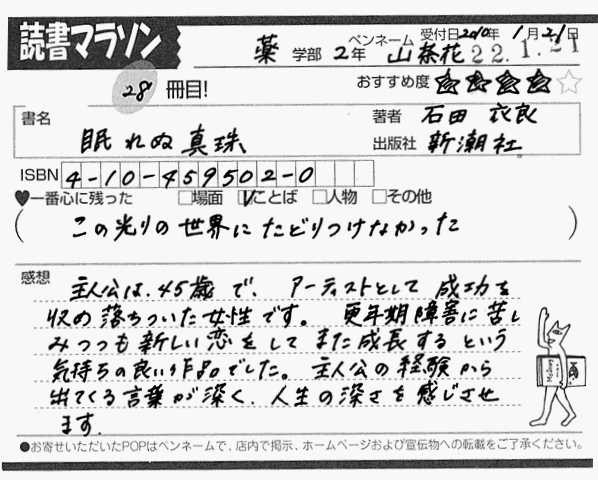 読書マラソン
受付日2010年 1月21日
薬 学部 2年 ペンネーム 山茶花 22.1.21
28 冊目!
おすすめ度 ★★★★☆
書名 眠れぬ真珠
著者 石田 衣良
出版社 新潮社
ISBN 4-10-459502-0
♥一番心に残った □場面 ☑ことば □人物 □その他
(この光りの世界にたどりつけなかった)
感想 主人公は、45歳で、アーティストとして成功を
収め落ちついた女性です。更年期障害に苦し
みつつも新しい恋をしてまた成長するという
気持ちの良い作品でした。主人公の経験から
出てくる言葉が深く、人生の深さを感じさせ
ます。
●お寄せいただいたPOPはペンネームで、店内で掲示、ホームページおよび宣伝物への転載をご了承ください。